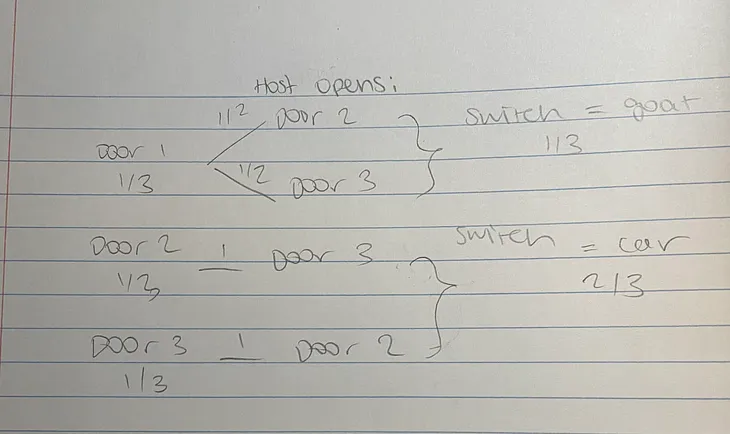 Host opens:
1/2 Door 2 switch = goat
Door 1 1/3
1/3 1/2 Door 3
Door 2 1 Door 3 switch = car
1/3 2/3
Door 3 1 Door 2
1/3